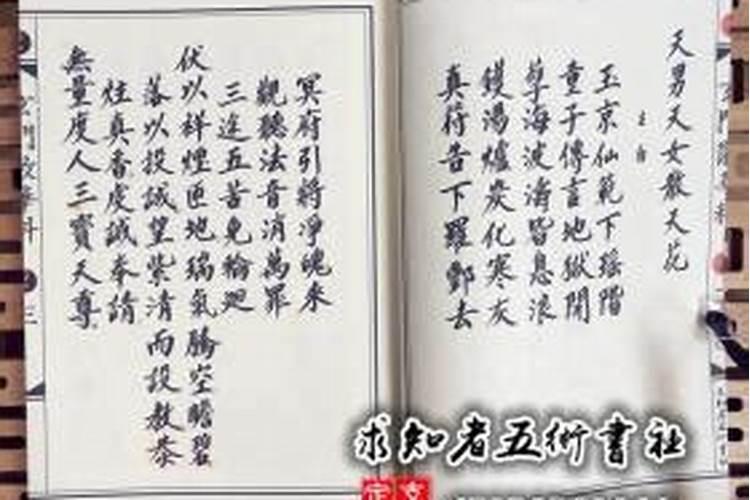 天男天女散天花
主白
玉京仙範下瑶階
童子傳言地獄開
孽海波濤皆息浪
鑊湯爐炭化寒灰
真符告下羅酆去
冥府引將凈魄來
觀聽法音消萬罪
三途五苦免輪廻
伏以祥煙匝地瑞氣騰空瞻碧
落以投誠望紫清而設教恭
炷真香虔誠奉請
無量度人三寶天尊
三
求知者五術書社